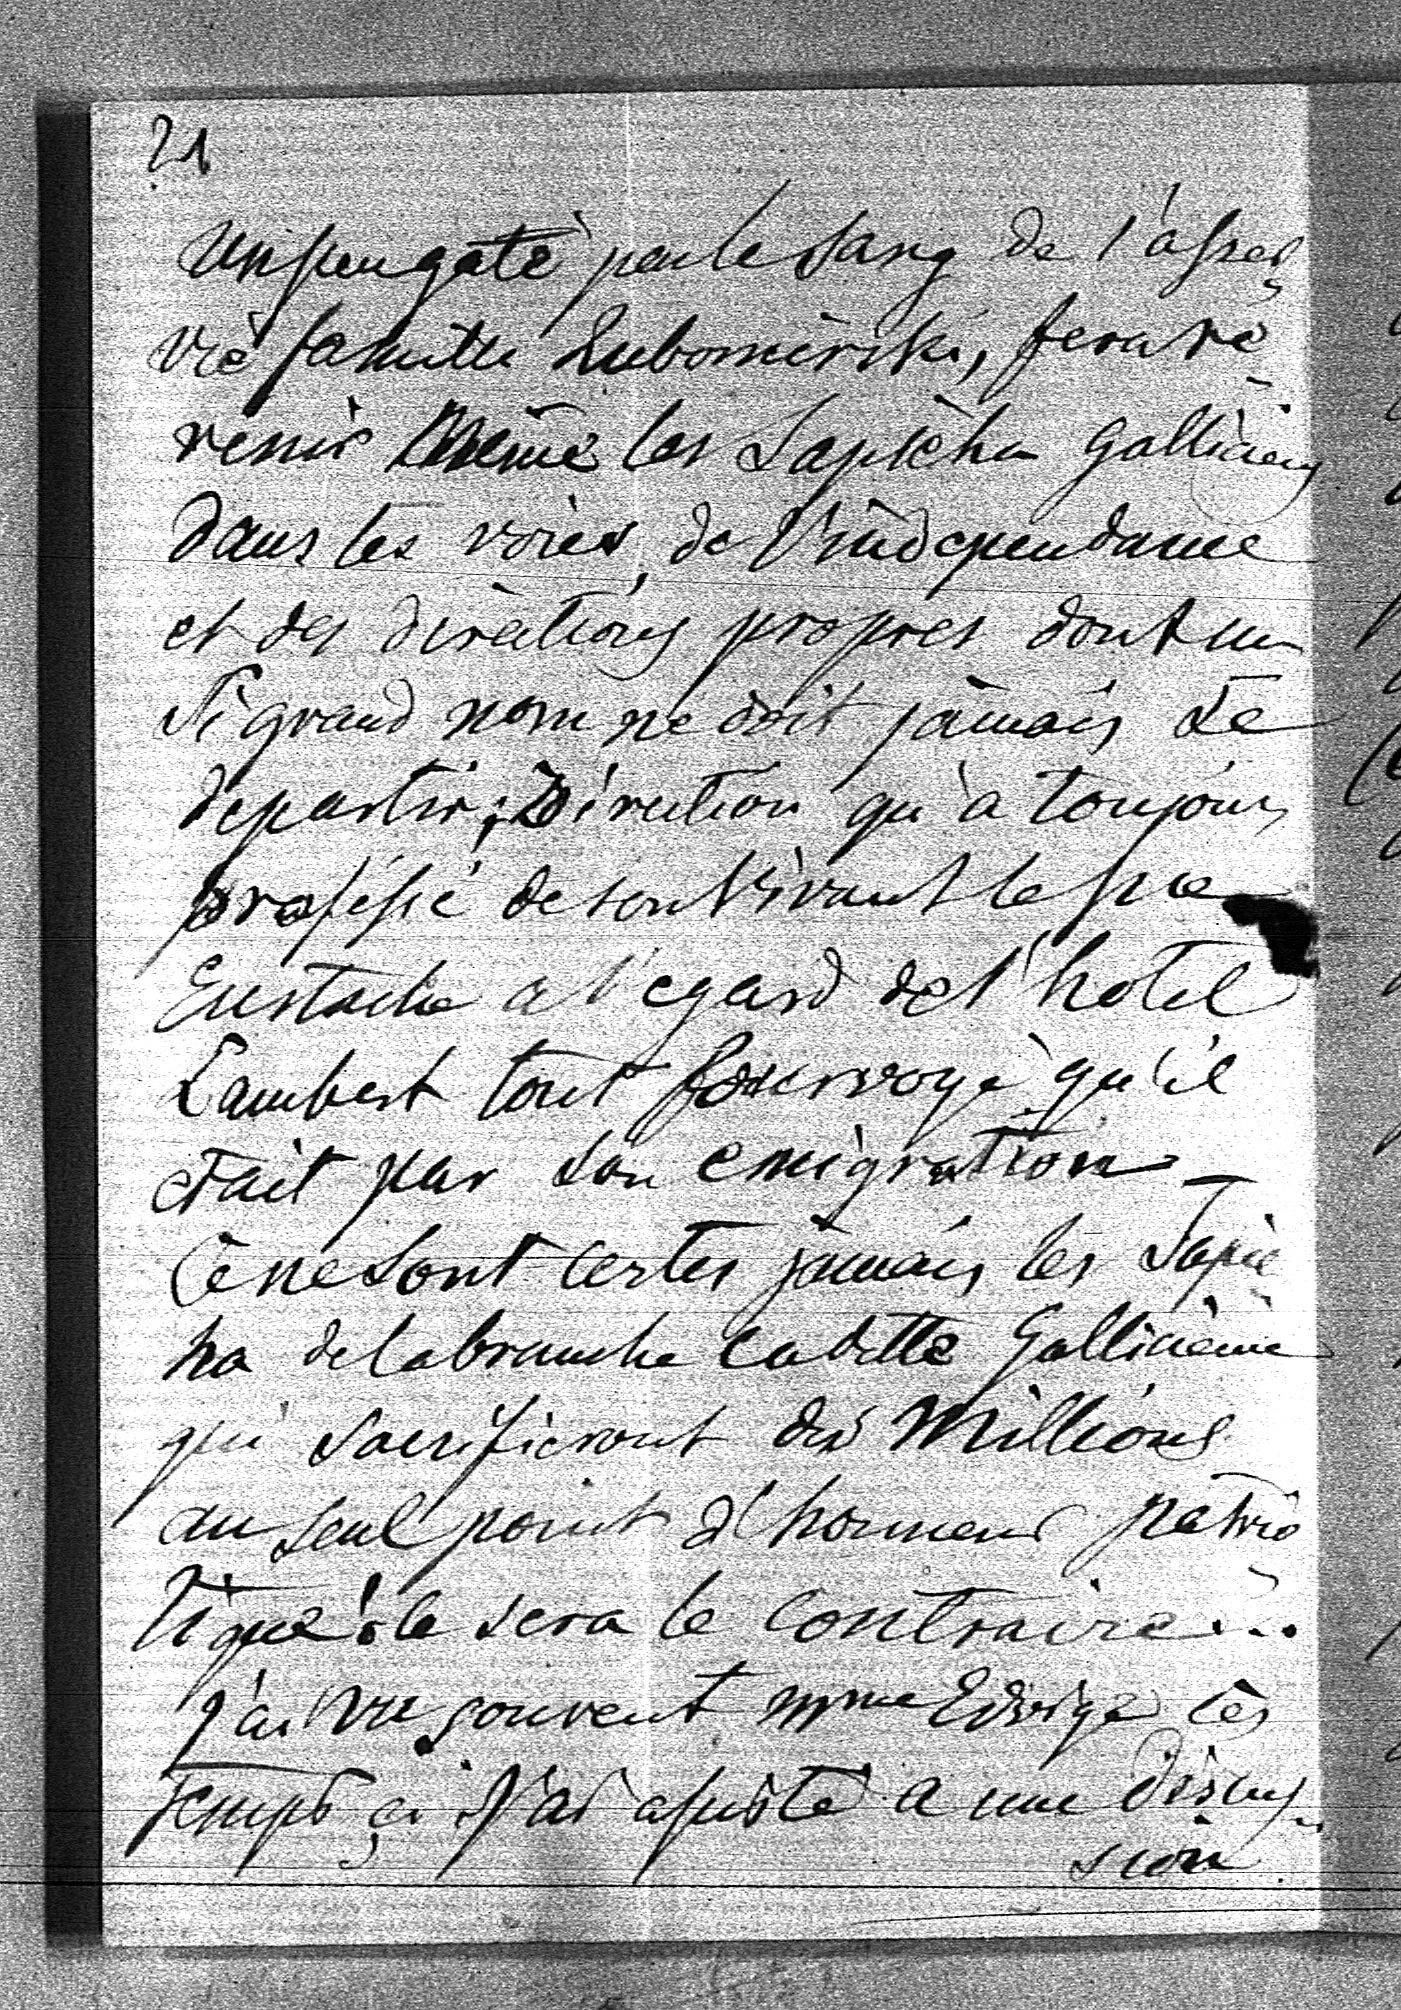 21
un peu gaté par le sang de l'asser
vie famille Lubomirski, fera re
venir même les Sapieha Galliciens
dans les voies, de l'independance
et des directions propres dont un
si grand nom ne doit jamais se
departir; Direction qu'a toujours
professé de son vivant le pce
Eustache a l'egard de l'hotel
Lambert tout fourvoyé qu'il
etait par son emigration
Ce ne sont certes jamais les Sapie
ha de la branche cadette Gallicienne
qui sacrifieront des Millions
au seul point d'honneur patrio
tique! ce sera le contraire...
J'ai vu souvent mme Edvige ces
temps çi J'ai assisté a une discus
sion